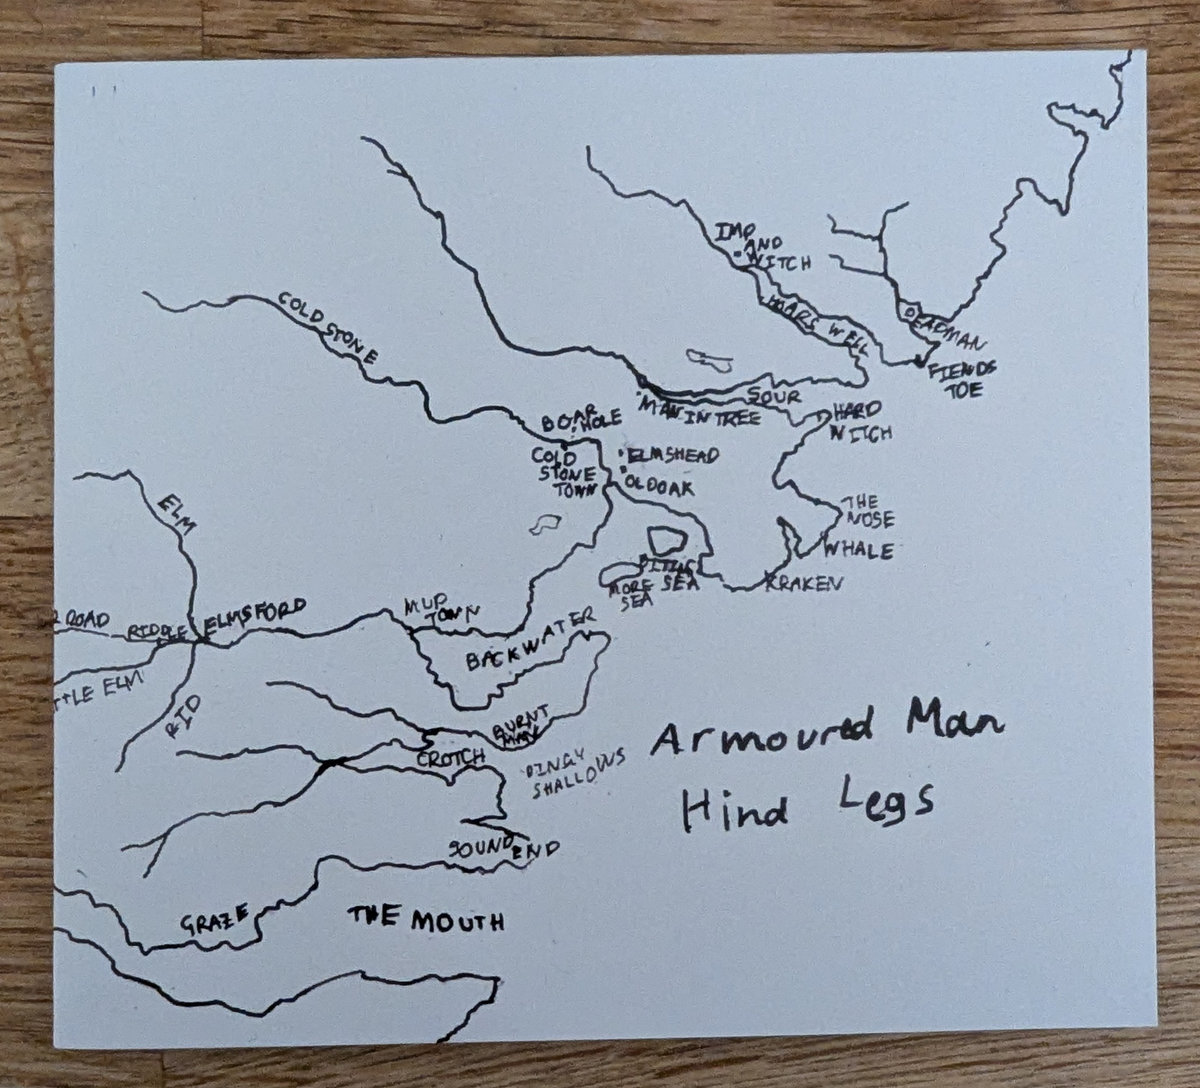 IMP
AND
WITCH
HOARS WELL
DEADMAN
FIENDS
TOE
COLD STONE
SOUR
MAN IN TREE
HARD
NITCH
BOAR
HOLE
COLD
STONE
TOWN
ELMSHEAD
OLDOAK
ELM
THE
NOSE
WHALE
KRAKEN
SEA
MORE
SEA
ROAD
RIDDLE
ELMSFORD
MUD
TOWN
BACKWATER
TTLE ELM
RID
BURNT
CROTCH
DINGY
SHALLOWS
Armoured Man
Hind Legs
SOUND END
GRAZE
THE MOUTH